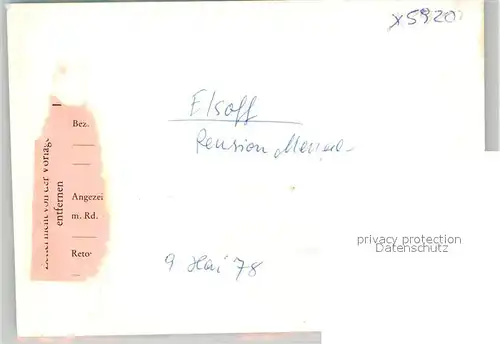 x5920
Elsoff
Pension
9 Mai 78
Bez.
Angezei
m. Rd.
Reto
nicht von der Vorlage
entfernen
privacy protection
Datenschutz